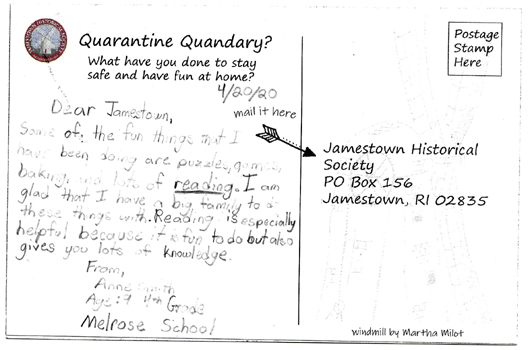 Quarantine Quandary?
What have you done to stay
safe and have fun at home?
4/20/20
mail it here
Dear Jamestown,
Some of the fun things that I
have been doing are puzzles, games,
baking, and lots of reading. I am
glad that I have a big family to do
these things with. Reading is especially
helpful because it is fun to do but also
gives you lots of knowledge.
From,
Anne Smith
Age: 9 4th Grade
Melrose School
Postage
Stamp
Here
Jamestown Historical
Society
PO Box 156
Jamestown, RI 02835
windmill by Martha Milot